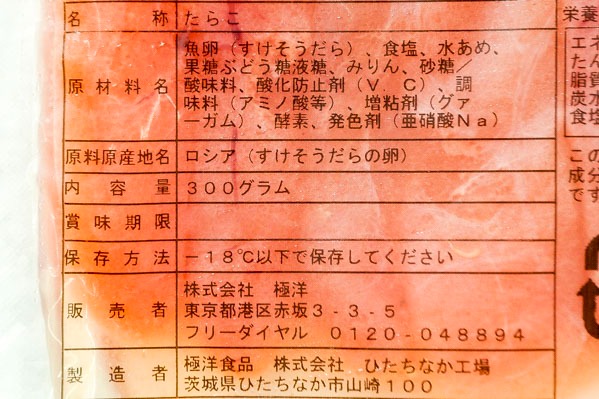 名称 たらこ
原材料名 魚卵（すけそうだら）、食塩、水あめ、
果糖ぶどう糖液糖、みりん、砂糖／
酸味料、酸化防止剤（Ｖ．Ｃ）、調
味料（アミノ酸等）、増粘剤（グァ
ーガム）、酵素、発色剤（亜硝酸Ｎａ）
原料原産地名 ロシア（すけそうだらの卵）
内容量 ３００グラム
賞味期限
保存方法 －１８℃以下で保存してください
販売者 株式会社　極洋
東京都港区赤坂３-３-５
フリーダイヤル　０１２０-０４８８９４
製造者 極洋食品　株式会社　ひたちなか工場
茨城県ひたちなか市山崎１００
栄養
エネ
たん
脂質
炭水
食塩
この
成分
です